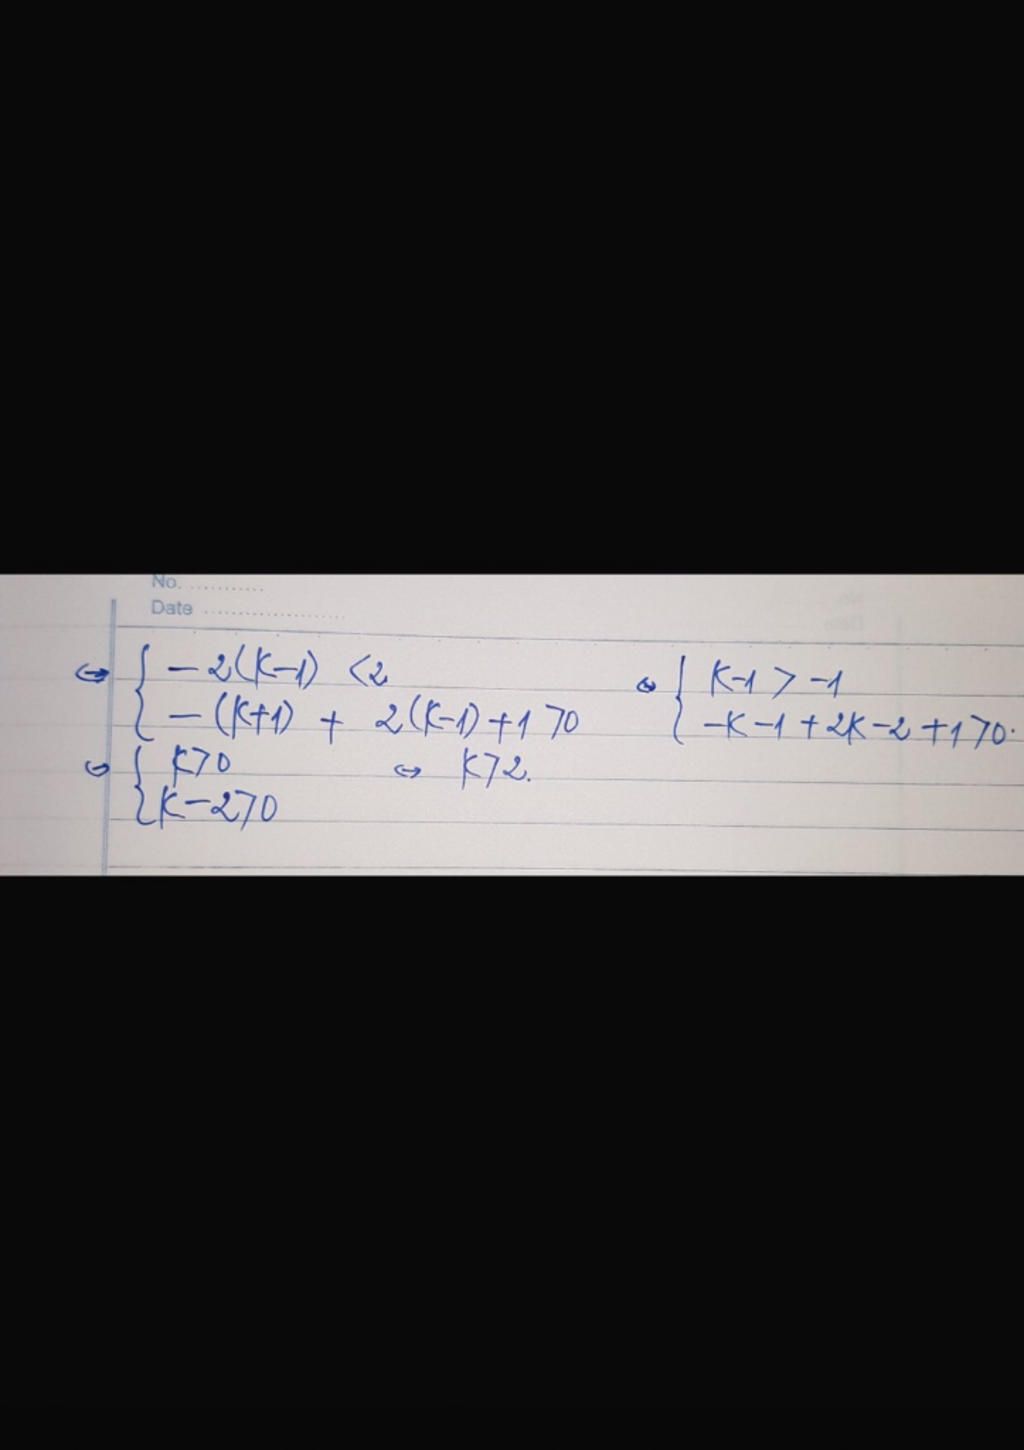 No. ...........
Date .....................
⇔ { -2(K-1) <2 ⇔ { K-1 > -1
-(K+1) + 2(K-1)+1 >0 -K-1+2K-2+1>0.
⇔ { K>0 ⇔ K>2.
K-2>0